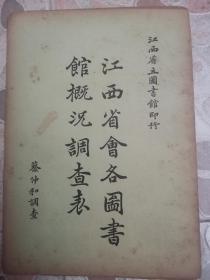 江西省立圖書館印行
江西省會各圖書
館概況調查表
蔡仲和調查